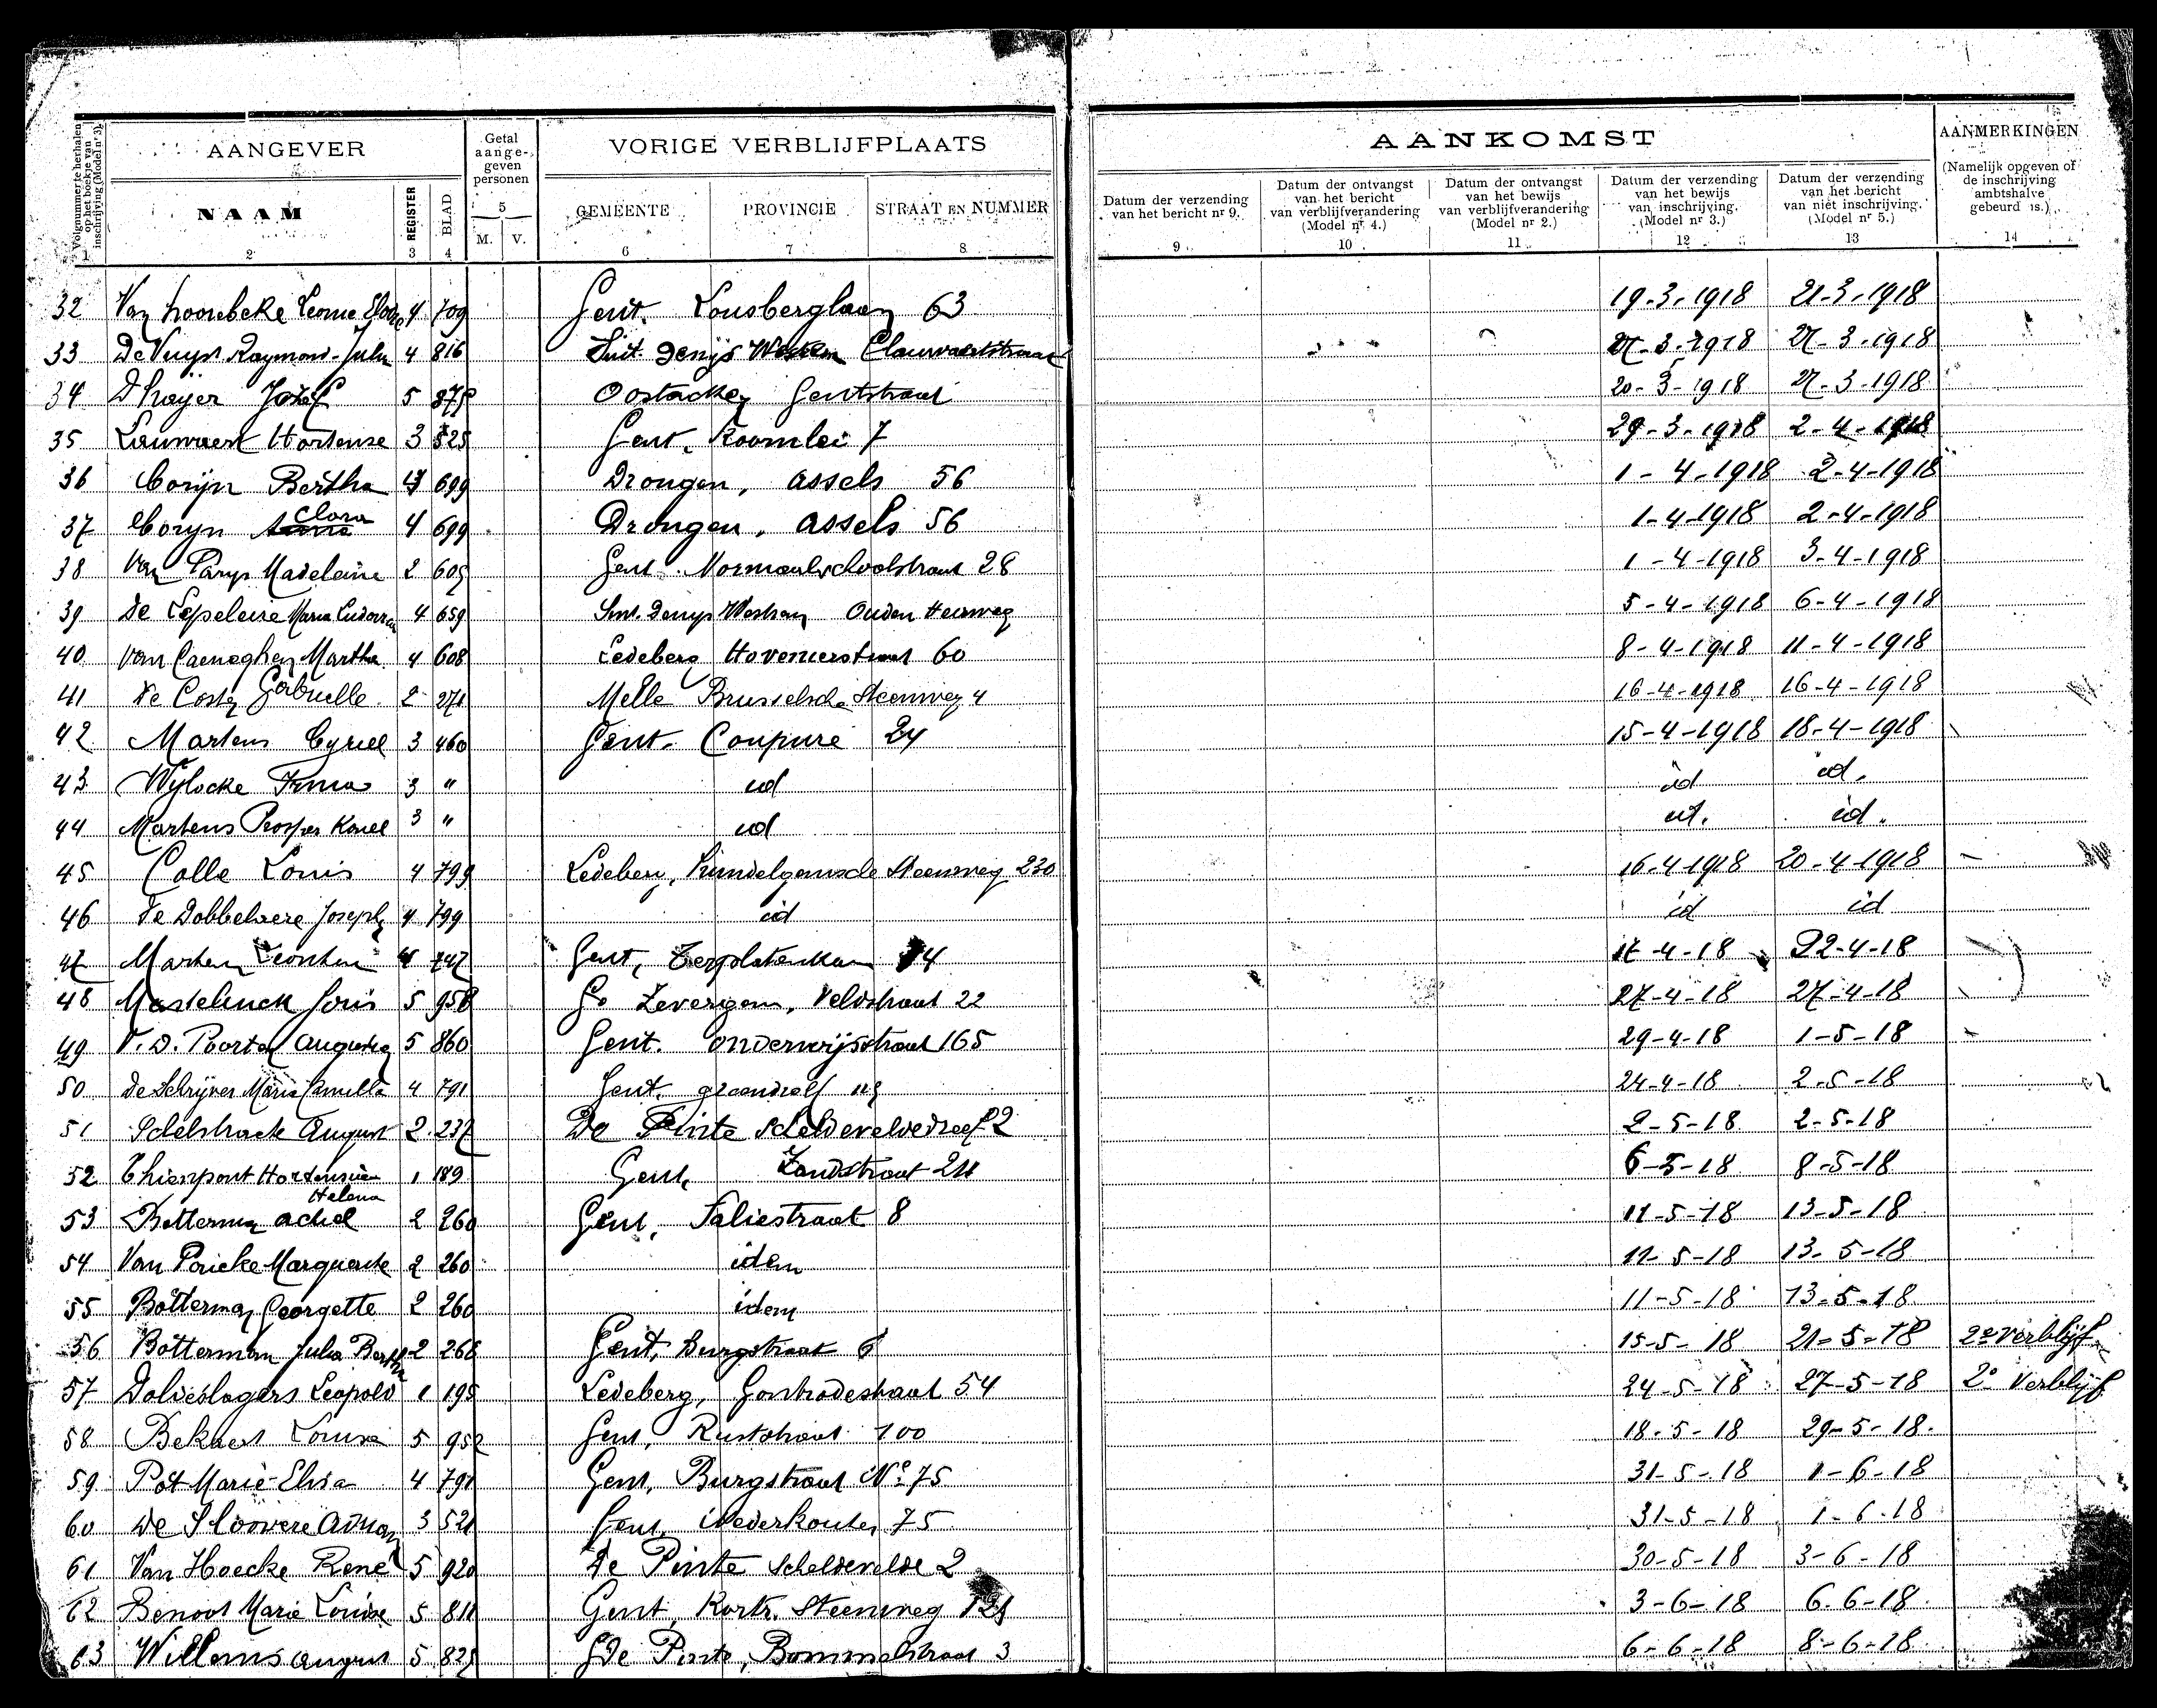 AANGEVER
Getal aange-geven personen
VORIGE VERBLIJFPLAATS
AANKOMST
AANMERKINGEN
Volgnummer te herhalen op het boekje van inschrijving (Model nr 3).
NAAM
REGISTER
BLAD
5
M. V.
GEMEENTE
PROVINCIE
STRAAT EN NUMMER
Datum der verzending van het bericht nr 9.
Datum der ontvangst van het bericht van verblijfverandering (Model nr 4.)
Datum der ontvangst van het bewijs van verblijfverandering (Model nr 2.)
Datum der verzending van het bewijs van inschrijving. (Model nr 3.)
Datum der verzending van het bericht van niet inschrijving. (Model nr 5.)
(Namelijk opgeven of de inschrijving ambtshalve gebeurd is.)
1 2 3 4 6 7 8 9 10 11 12 13 14
32 Van hoorebeke Leonie 4 709 Gent. Lousberglaan 63 19-3-1918 21-3-1918
33 De Vuyst Raymond 4 816 Sint Denijs Westrem Clauwaertstraat 27-3-1918 27-3-1918
34 D'haÿer Jozef 5 Oostacker Gentstraat 20-3-1918 27-3-1918
35 Lauwaert Hortense 3 525 Gent, Koornlei 7 29-3-1918 2-4-1918
36 Corijn Bertha 4 699 Drongen, Assels 56 1-4-1918 2-4-1918
37 Coryn Clara 4 699 Drongen, Assels 56 1-4-1918 2-4-1918
38 Van Parys Madeleine 2 605 Gent. Normaalschoolstraat 28 1-4-1918 3-4-1918
39 De Lepeleire Maria 4 659 Sint. Denys Westrem Ouden Heerweg 5-4-1918 6-4-1918
40 Van Caeneghem Martha 4 608 Ledeberg Hovenierstraat 60 8-4-1918 11-4-1918
41 De Coster Gabrielle 2 271 Melle Brusselsche Steenweg 4 16-4-1918 16-4-1918
42 Martens Cyriel 3 460 Gent. Coupure 24 15-4-1918 18-4-1918
43 Wylocke Irma 3 " id id id.
44 Martens Prosper Karel 3 " id id. id.
45 Calle Louis 4 799 Ledeberg, Hundelgemsche Steenweg 230 16-4-1918 20-4-1918
46 De Dobbelaere Joseph 4 799 id id id
47 Martens Leontine 4 747 Gent, Terplatenkaai 17-4-18 22-4-18
48 Masselinck Joris 5 958 Zevergem, Veldstraat 22 27-4-18 27-4-18
49 V. D. Poorten 5 860 Gent. Onderwijsstraat 165 29-4-18 1-5-18
50 De Schrijver Maria Camilla 4 791 Gent. 24-4-18 2-5-18
51 Schelstraete August 2 237 De Pinte Scheldeveldedreef 2 2-5-18 2-5-18
52 Thienpont Hortensia Helena 1 189 Gent, Zandstraat 24 6-5-18 8-5-18
53 Botterman Achiel 2 260 Gent, Saliestraat 8 11-5-18 13-5-18
54 Van Poucke Marguerite 2 260 idem 11-5-18 13-5-18
55 Botterman Georgette 2 260 idem 11-5-18 13-5-18
56 Botterman Julia Bertha 2 266 Gent, Burgstraat 6 15-5-18 21-5-18 2e Verblijf
57 Dolieslagers Leopold 1 195 Ledeberg, Gontrodestraat 54 24-5-18 27-5-18 2e Verblijf
58 Bekaert Louisa 5 952 Gent, Ruststraat 100 18-5-18 29-5-18.
59 Pot Marie-Elisa 4 791 Gent, Burgstraat No 75 31-5-18 1-6-18
60 De Sloovere 3 521 Gent, Nederkouter 75 31-5-18 1-6-18
61 Van Hoecke René 5 920 De Pinte Scheldevelde 2 30-5-18 3-6-18
62 Benoot Marie Louise 5 811 Gent, Kortr. Steenweg 121 3-6-18 6-6-18
63 Willems August 5 825 De Pinte, Bommelstraat 3 6-6-18 8-6-18